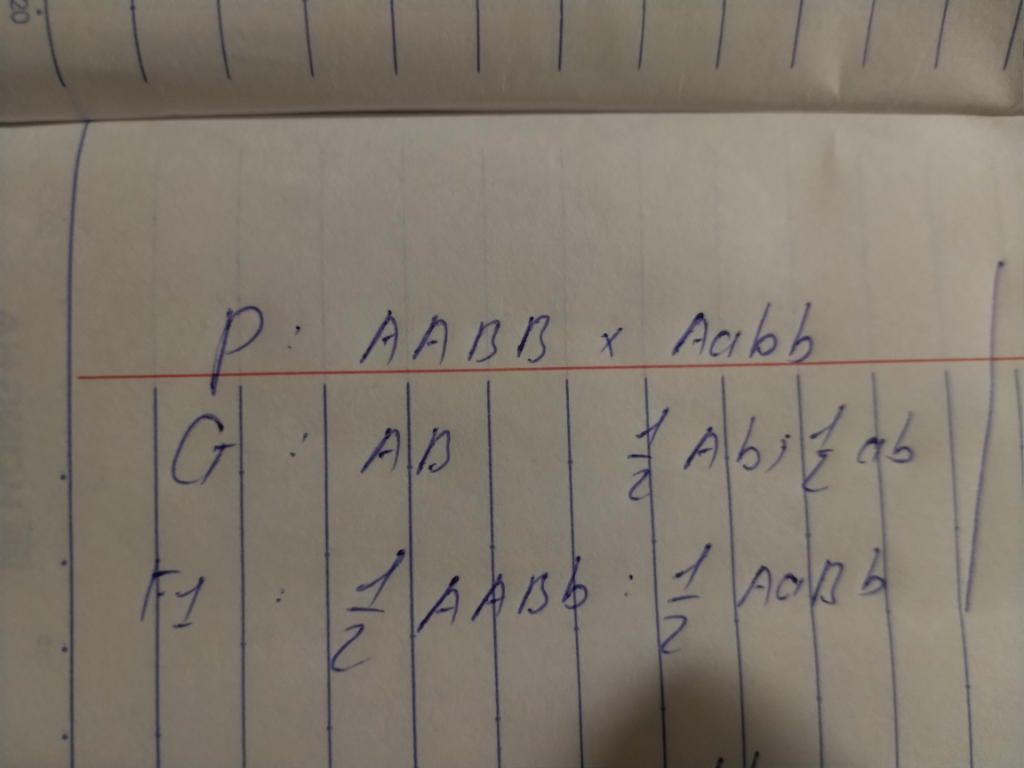 P : AABB x Aabb
G : AB 1/2 Ab; 1/2 ab
F1 : 1/2 AABb : 1/2 AaBb